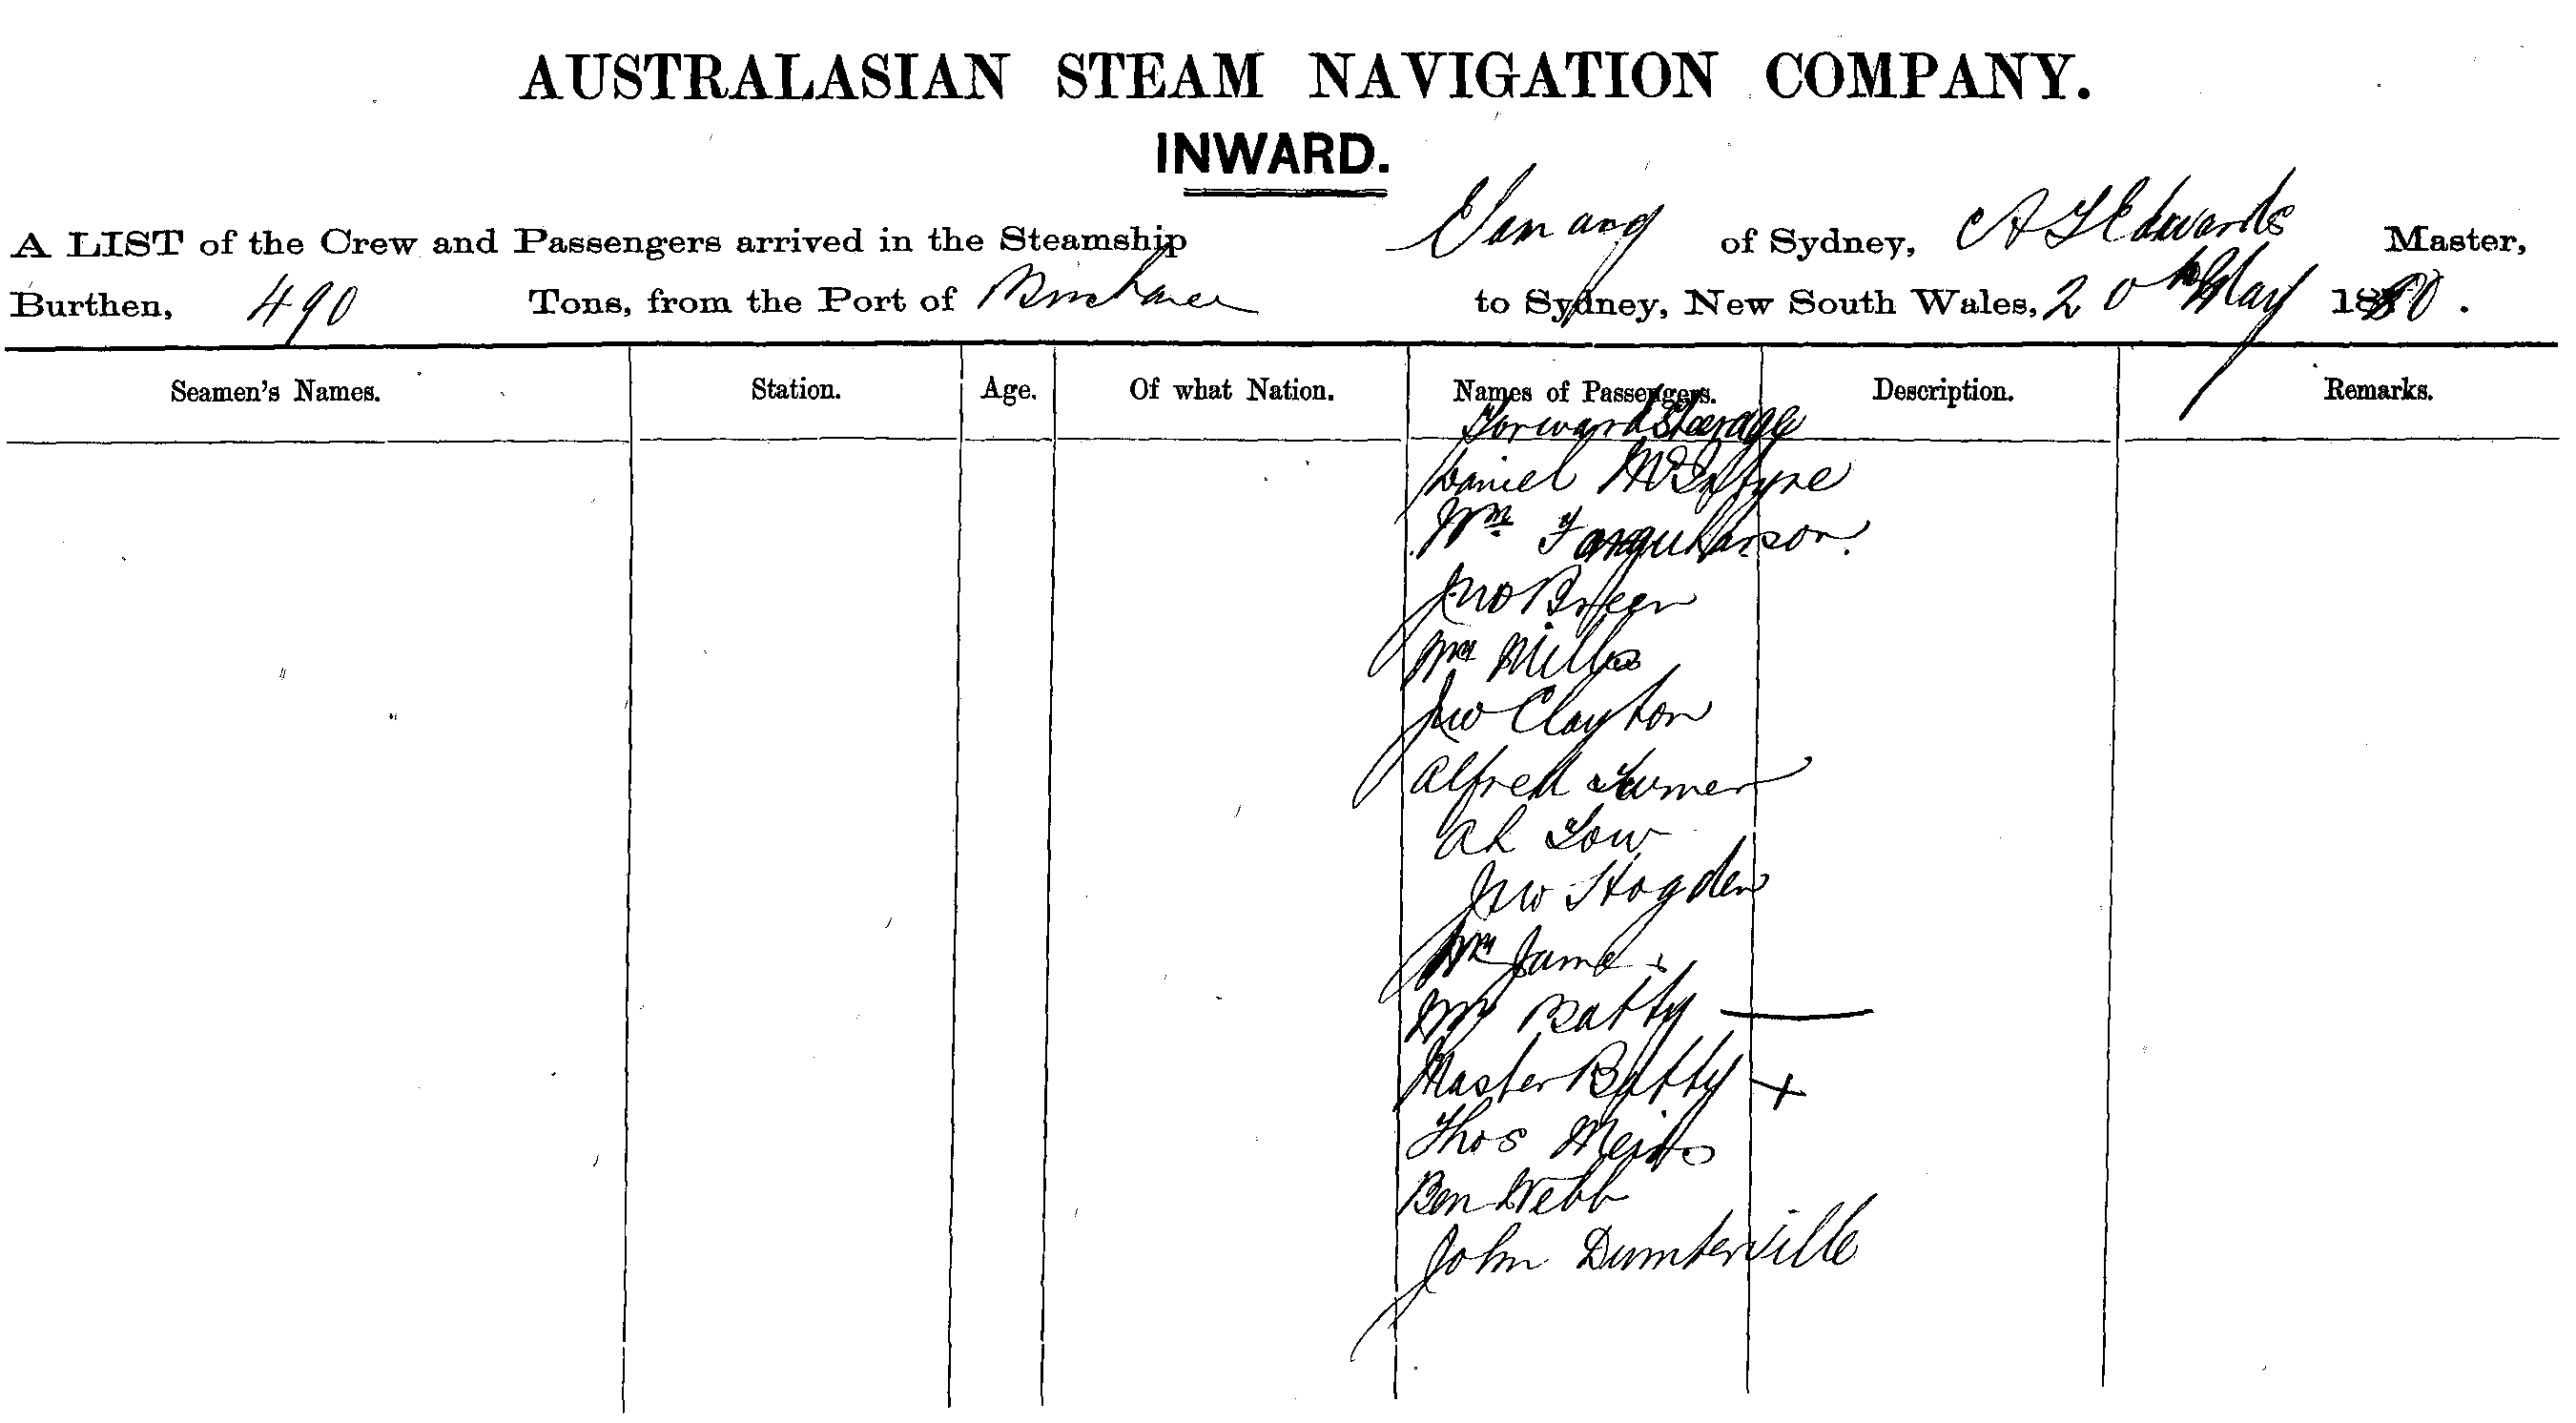 AUSTRALASIAN STEAM NAVIGATION COMPANY.
INWARD.
A LIST of the Crew and Passengers arrived in the Steamship Elamang of Sydney, A Edwards Master,
Burthen, 490 Tons, from the Port of Brisbane to Sydney, New South Wales, 20th May 1880.
Seamen's Names. Station. Age. Of what Nation. Names of Passengers. Description. Remarks.
Forward Steerage
Daniel McIntyre
Wm Farquharson.
Jno Breen
Wm Mills
Jno Clayton
Alfred Turner
Ah Low
Jno Hogden
Wm James
Mr Batty
Master Batty +
Thos
Ben Webb
John Dumterville